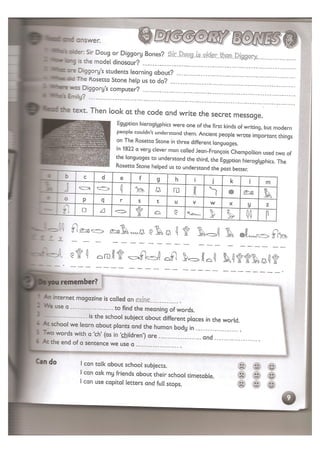 DIGGORY BONES
Read and answer.
Who's older: Sir Doug or Diggory Bones? Sir Doug is older than Diggory.
How long is the model dinosaur?
What are Diggory's students learning about?
What did The Rosetta Stone help us to do?
Where was Diggory's computer?
Who's Emily?
Read the text. Then look at the code and write the secret message.
Egyptian hieroglyphics were one of the first kinds of writing, but modern
people couldn't understand them. Ancient people wrote important things
on The Rosetta Stone in three different languages.
In 1822 a very clever man called Jean-François Champollion used two of
the languages to understand the third, the Egyptian hieroglyphics. The
Rosetta Stone helped us to understand the past better.
a b c d e f g h i j k l m
n o p q r s t u v w x y z
Do you remember?
1 An internet magazine is called an ezine.
2 We use a to find the meaning of words.
3 is the school subject about different places in the world.
4 At school we learn about plants and the human body in .
5 Two words with a 'ch' (as in 'children') are and .
6 At the end of a sentence we use a .
Can do
I can talk about school subjects.
I can ask my friends about their school timetable.
I can use capital letters and full stops.
9